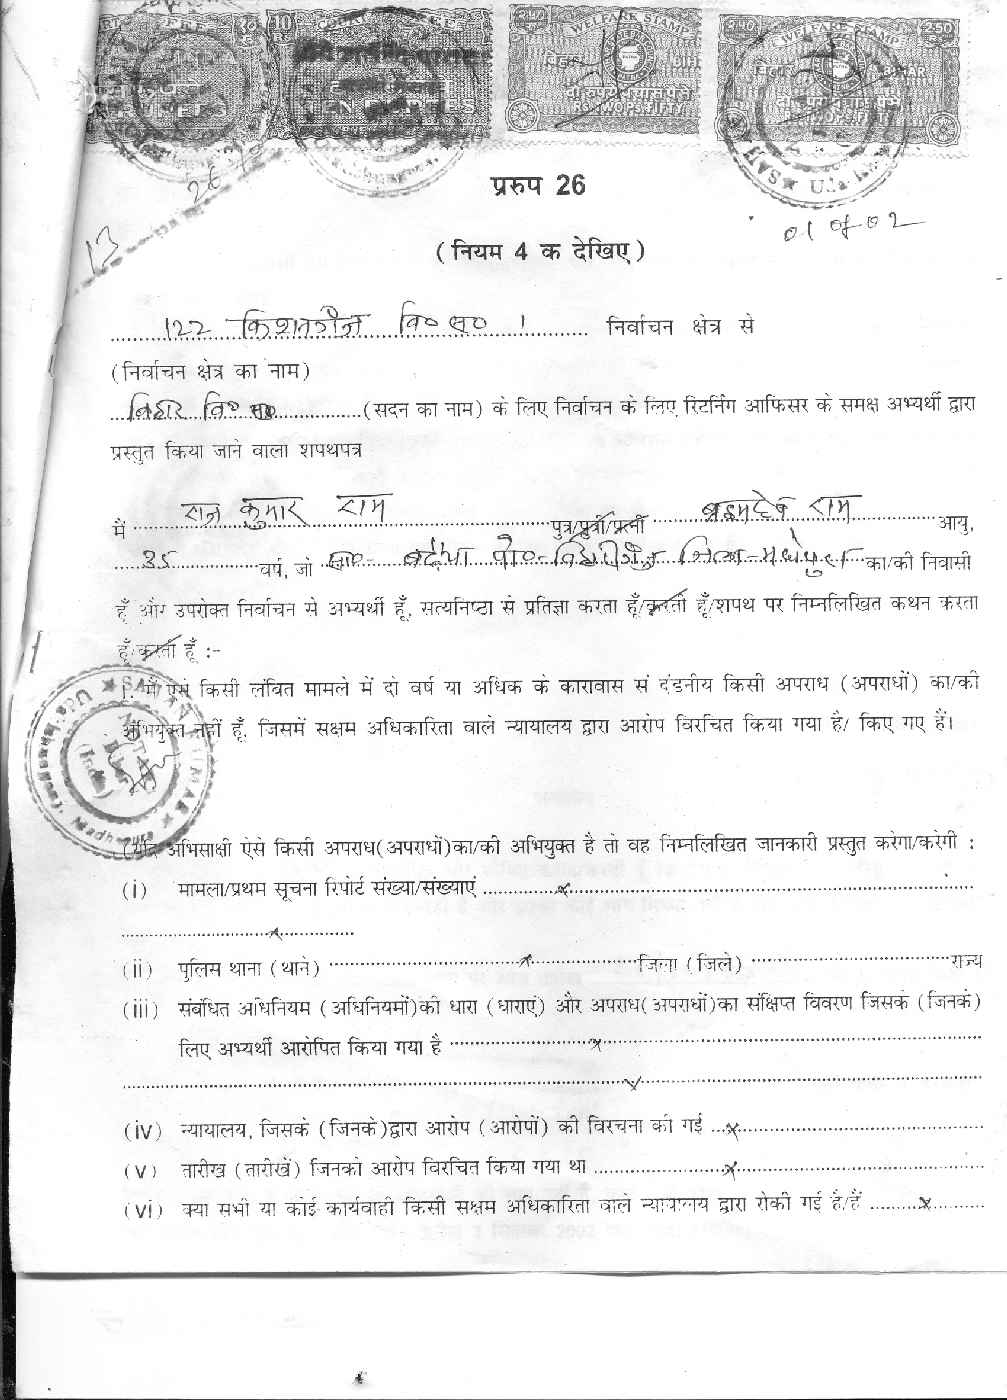 COURT FEE
TEN RUPEES
WELFARE STAMP
बिहार BIHAR
दो रुपये पचास पैसे
RS. TWO PS. FIFTY
WELFARE STAMP
2.50
बिहार BIHAR
दो रुपये पचास पैसे
RS. TWO PS. FIFTY
13
26
प्ररुप 26
01 of 02
(नियम 4 क देखिए)
122 किशनगंज वि० स० । निर्वाचन क्षेत्र से
(निर्वाचन क्षेत्र का नाम)
बिहार वि० स० (सदन का नाम) के लिए निर्वाचन के लिए रिटर्निंग आफिसर के समक्ष अभ्यर्थी द्वारा
प्रस्तुत किया जाने वाला शपथपत्र
मैं राज कुमार राम पुत्र/पुत्री/पत्नी ब्रह्मदेव राम आयु,
35 वर्ष, जो सा०- पो०- जिला-मधेपुरा का/की निवासी
हूँ और उपरोक्त निर्वाचन से अभ्यर्थी हूँ, सत्यनिष्ठा से प्रतिज्ञा करता हूँ/करती हूँ/शपथ पर निम्नलिखित कथन करता
हूँ/करती हूँ :-
1. मैं ऐसे किसी लंबित मामले में दो वर्ष या अधिक के कारावास सं दंडनीय किसी अपराध (अपराधों) का/की
अभियुक्त नहीं हूँ, जिसमें सक्षम अधिकारिता वाले न्यायालय द्वारा आरोप विरचित किया गया है/ किए गए हैं।
(यदि अभिसाक्षी ऐसे किसी अपराध(अपराधों)का/की अभियुक्त है तो वह निम्नलिखित जानकारी प्रस्तुत करेगा/करेगी :
(i) मामला/प्रथम सूचना रिपोर्ट संख्या/संख्याएं x
x
(ii) पुलिस थाना (थाने) x जिला (जिले) राज्य
(iii) संबंधित अधिनियम (अधिनियमों)की धारा (धाराएं) और अपराध(अपराधों)का संक्षिप्त विवरण जिसके (जिनके)
लिए अभ्यर्थी आरोपित किया गया है x
x
(iv) न्यायालय, जिसके (जिनके)द्वारा आरोप (आरोपों) की विरचना की गई x
(v) तारीख (तारीखें) जिनको आरोप विरचित किया गया था x
(vi) क्या सभी या कोई कार्यवाही किसी सक्षम अधिकारिता वाले न्यायालय द्वारा रोकी गई है/हैं x